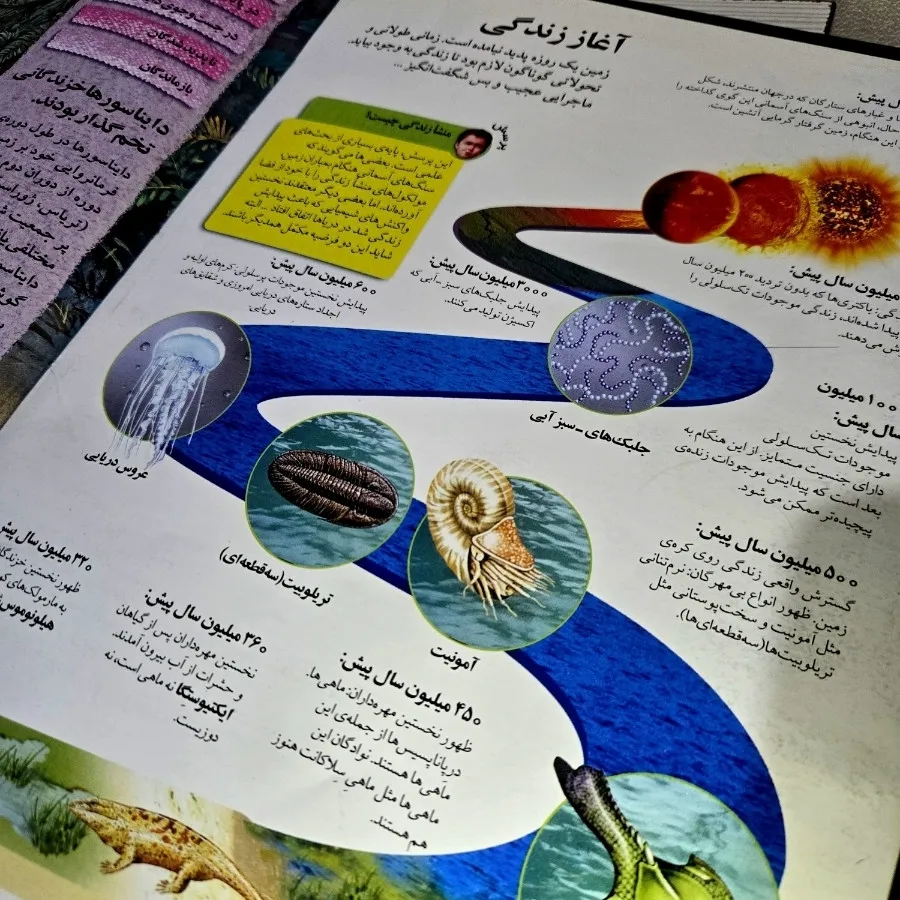 آغاز زندگی
زمین یک روزه پدید نیامده است. زمانی طولانی و
تحولاتی گوناگون لازم بود تا زندگی به وجود بیاید.
ماجرایی عجیب و بس شگفت‌انگیز ...
پیش:
و غبارهای ستارگان که در جهان منتشرند، شکل
انبوهی از سنگ‌های آسمانی این گوی گداخته را
این هنگام، زمین گرفتار گرمایی آتشین است.
پرسش
منشأ زندگی چیست؟
این پرسش، پایه‌ی بسیاری از بحث‌های
علمی است. بعضی‌ها می‌گویند که
سنگ‌های آسمانی هنگام بمباران زمین
مولکول‌های منشأ زندگی را با خود از فضا
آورده‌اند. اما بعضی دیگر معتقدند نخستین
واکنش های شیمیایی که باعث پیدایش
زندگی شد در دریاها اتفاق افتاد ... البته
شاید این دو فرضیه مکمل همدیگر باشند.
میلیون سال پیش:
باکتری‌ها که بدون تردید ۲۰۰ میلیون سال
پیدا شده‌اند، زندگی موجودات تک‌سلولی را
می‌دهند.
۳۰۰۰ میلیون سال پیش:
پیدایش جلبک‌های سبز ـ آبی که
اکسیژن تولید می کنند.
جلبک‌های ـ سبز آبی
۱۰۰۰ میلیون
سال پیش:
پیدایش نخستین
موجودات تک‌سلولی
دارای جنسیت متمایز. از این هنگام به
بعد است که پیدایش موجودات زنده‌ی
پیچیده‌تر ممکن می‌شود.
۶۰۰ میلیون سال پیش:
پیدایش نخستین موجودات پر سلولی: کرم‌های اولیه و
اجداد ستاره‌های دریایی امروزی و شقایق‌های
دریایی
عروس دریایی
۵۰۰ میلیون سال پیش:
گسترش واقعی زندگی روی کره‌ی
زمین: ظهور انواع بی مهرگان: نرم‌تنانی
مثل آمونیت و سخت‌پوستانی مثل
تریلوبیت‌ها (سه‌قطعه‌ای‌ها).
تریلوبیت (سه‌قطعه‌ای)
آمونیت
۴۵۰ میلیون سال پیش:
ظهور نخستین مهره‌داران: ماهی‌ها.
درپاناپسیس‌ها از جمله‌ی این
ماهی ها هستند. نوادگان این
ماهی ها مثل ماهی سلاکانت هنوز
هم هستند.
۳۶۰ میلیون سال پیش:
نخستین مهره‌داران پس از گیاهان
و حشرات از آب بیرون آمدند.
ایکتیوستگا نه ماهی است، نه
دوزیست.
۳۲۰ میلیون سال پیش
ظهور نخستین خزندگان
به مارمولک‌های
هیلونوموس
در جست‌وجوی
ناپدیدشدگان
بازماندگان
دایناسورها خزندگانی
تخم‌گذار بودند.
دایناسورها در طول دوره‌ی
فرمانروایی خود بر زمین
دوره از دوران دوم
(تریاس، ژوراس
پر جمعیت
مختلفی
دایناسور